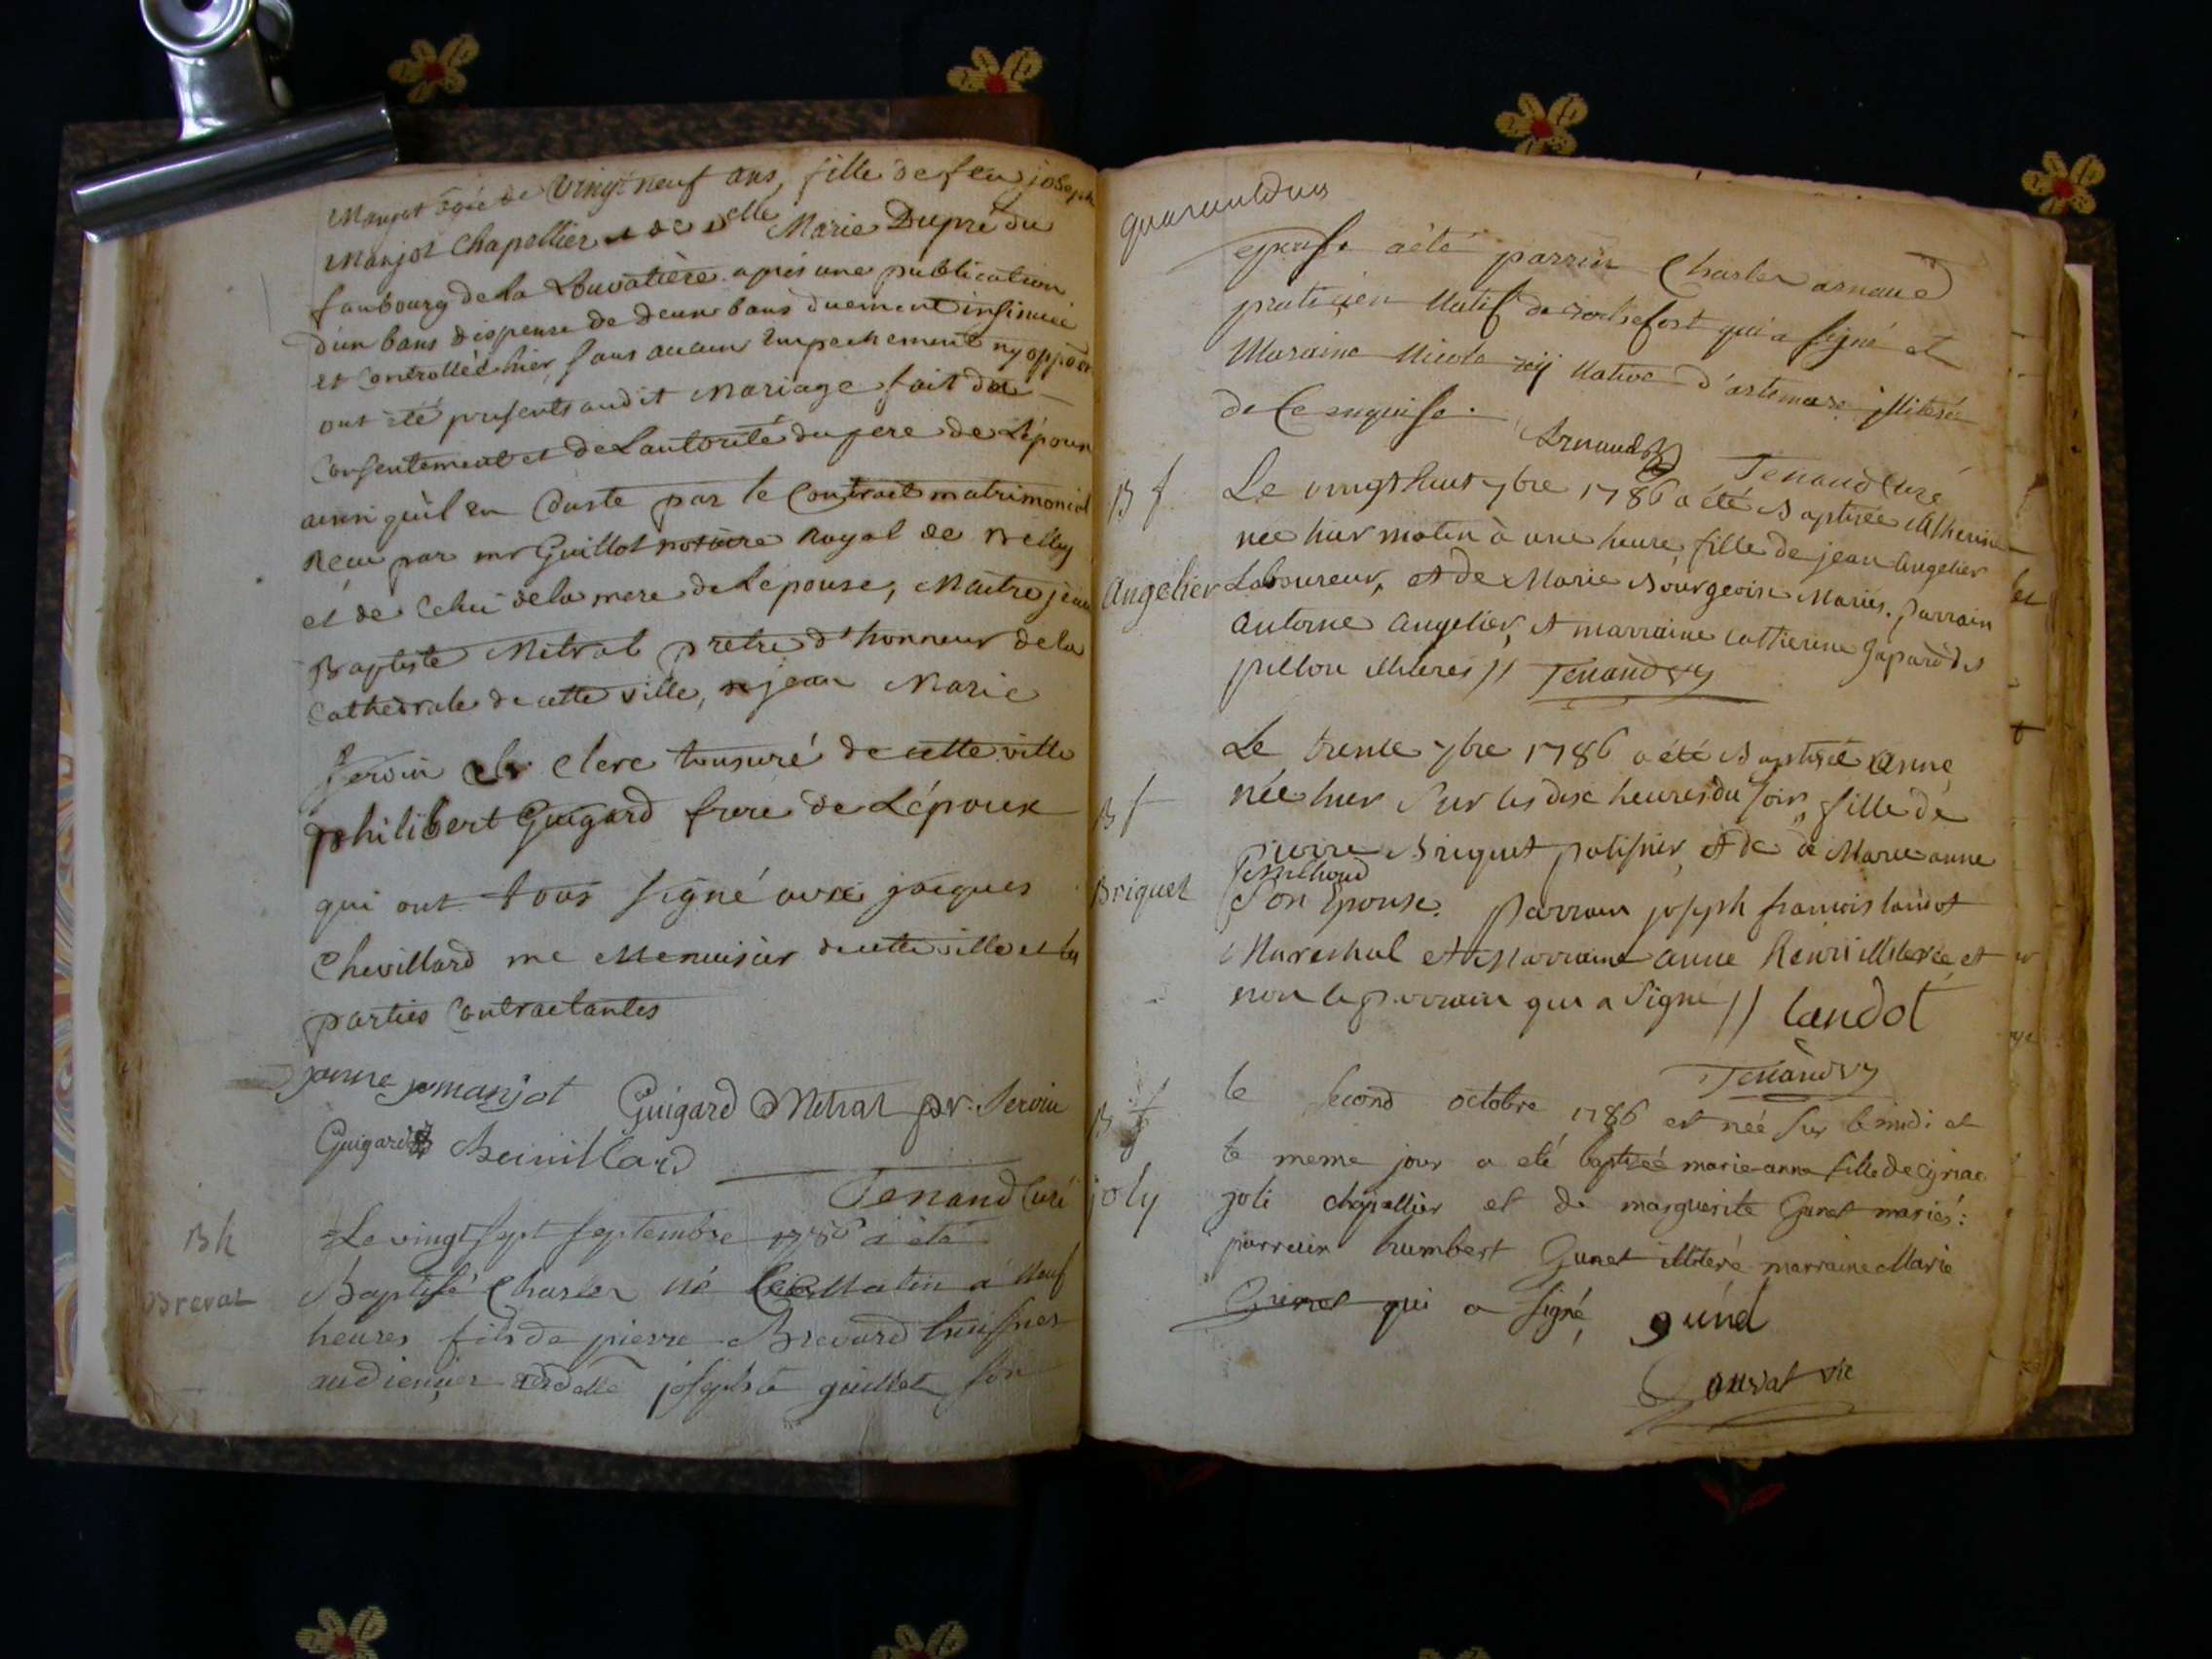 Manjot agée de vingt neuf ans, fille de feu joseph
Manjot Chapellier et de delle Marie Dupré du
faubourg de la Louvatière après une publication
d'un bans dispense de deux bans duement insinuée
et Controllée hier, sans aucun Empechement ny opposon
ont été presents audit Mariage fait du
Consentement et de L'autorité du pere de L'époux
ainsi qu'il en Conste par le Contract matrimonial
Recu par mr Guillot notaire Royal de Belley
et de Celui de la mere de L'épouse, Maitre jean
Baptiste Metral prêtre d'honneur de la
Cathedrale de cette ville, jean Marie
Seroin Clerc tonsuré de cette ville
philibert Guigard frere de L'époux
qui ont tous signé avec jacques
Chevillard me Menuisier de cette ville et les
parties Contractantes
janne manjot Guigard Metral pr. Seroin
Guigard Cheuvillard
Tenand Curé
Bh
Brevat
Le vingt sept septembre 1786 a été
Baptisé Charles né Ce Matin a Neuf
heures fils de pierre Brevard huissier
audiencier et delle josephte guillet son
quarantedeux
epouse a été parrin Charles arnaud
praticien Natif de rochefort qui a signé et
Maraine Nicole rey Native d'artemare illiterée
de Ce enquise.
Arnaud
Tenand Curé
B f
Angelier
Le vingt huit 7bre 1786 a été Baptisée Catherine
née hier matin à une heure, fille de jean Angelier
Laboureur, et de Marie Bourgeois Mariés. parrain
Antoine Angelier, et marraine Catherine
pillon illiteres // Tenand
B f
Briquet
Le trente 7bre 1786 a été Baptisée Anne
née hier sur les dix heures du soir, fille de
pierre Briquet patissier, et de de Marie anne
son Epouse. parrain joseph francois landot
Mareshal et Marraine anne Renri illiterée et
non le parrain qui a signé // landot
Tenand
B f
joly
le second octobre 1786 est née sur le midi et
le meme jour a eté baptisée marie-anne fille de Ciriac
joli chapellier et de marguerite Gunet mariés:
parrain humbert Gunet illiteré marraine Marie
Gunet qui a signé, gunet
vic